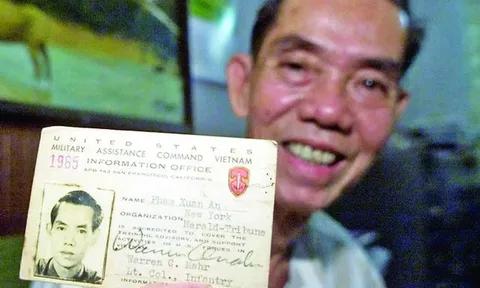 UNITED STATES
MILITARY ASSISTANCE COMMAND VIETNAM
1965 INFORMATION OFFICE
APO 143 SAN FRANCISCO, CALIFORNIA
NAME Pham Xuan An
ORGANIZATION New York
Herald-Tribune
IS ACCREDITED TO COVER THE
OPERATIONAL, ADVISORY, AND SUPPORT
ACTIVITIES OF U.S. FORCES IN
Warren C. Mahr
Lt. Col., Infantry
INFORMATION